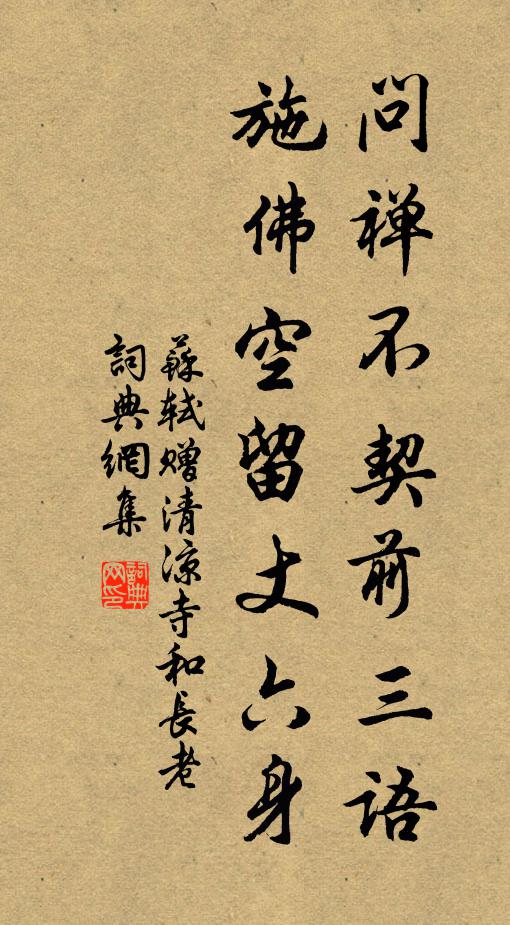 問禅不契前三語
施佛空留丈六身
蘇軾贈清涼寺和長老
詞典網集
詞典
网印